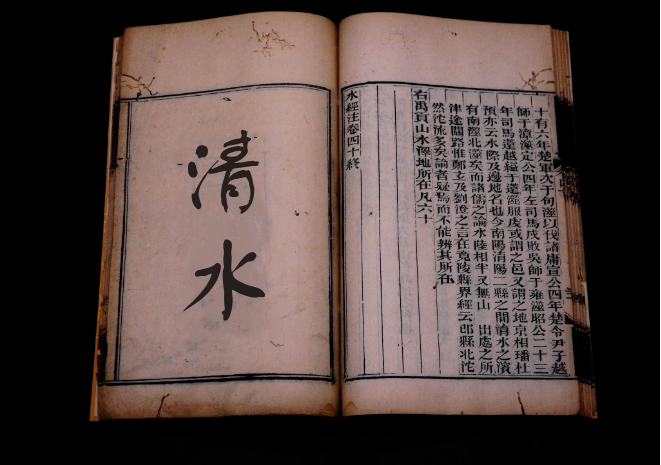 十有六年楚軍次于句澨以伐諸庸宣公四年楚令尹子越
師于漳澨定公四年左司馬戌敗吳師于雍澨昭公二十三
年司馬薳越縊于薳澨服虔或謂之邑又謂之地京相璠杜
預亦云水際及邊地名也今南陽淯陽二縣之間淯水之濱
有南澨北澨矣而諸儒之論水陸相半又無山 出處之所
津途關路惟鄭玄及劉澄之言在竟陵縣界經云邔縣北沱
然沱流多矣論者疑焉而不能辨其所在
右禹貢山水澤地所在凡六十
水經注卷四十終
清水